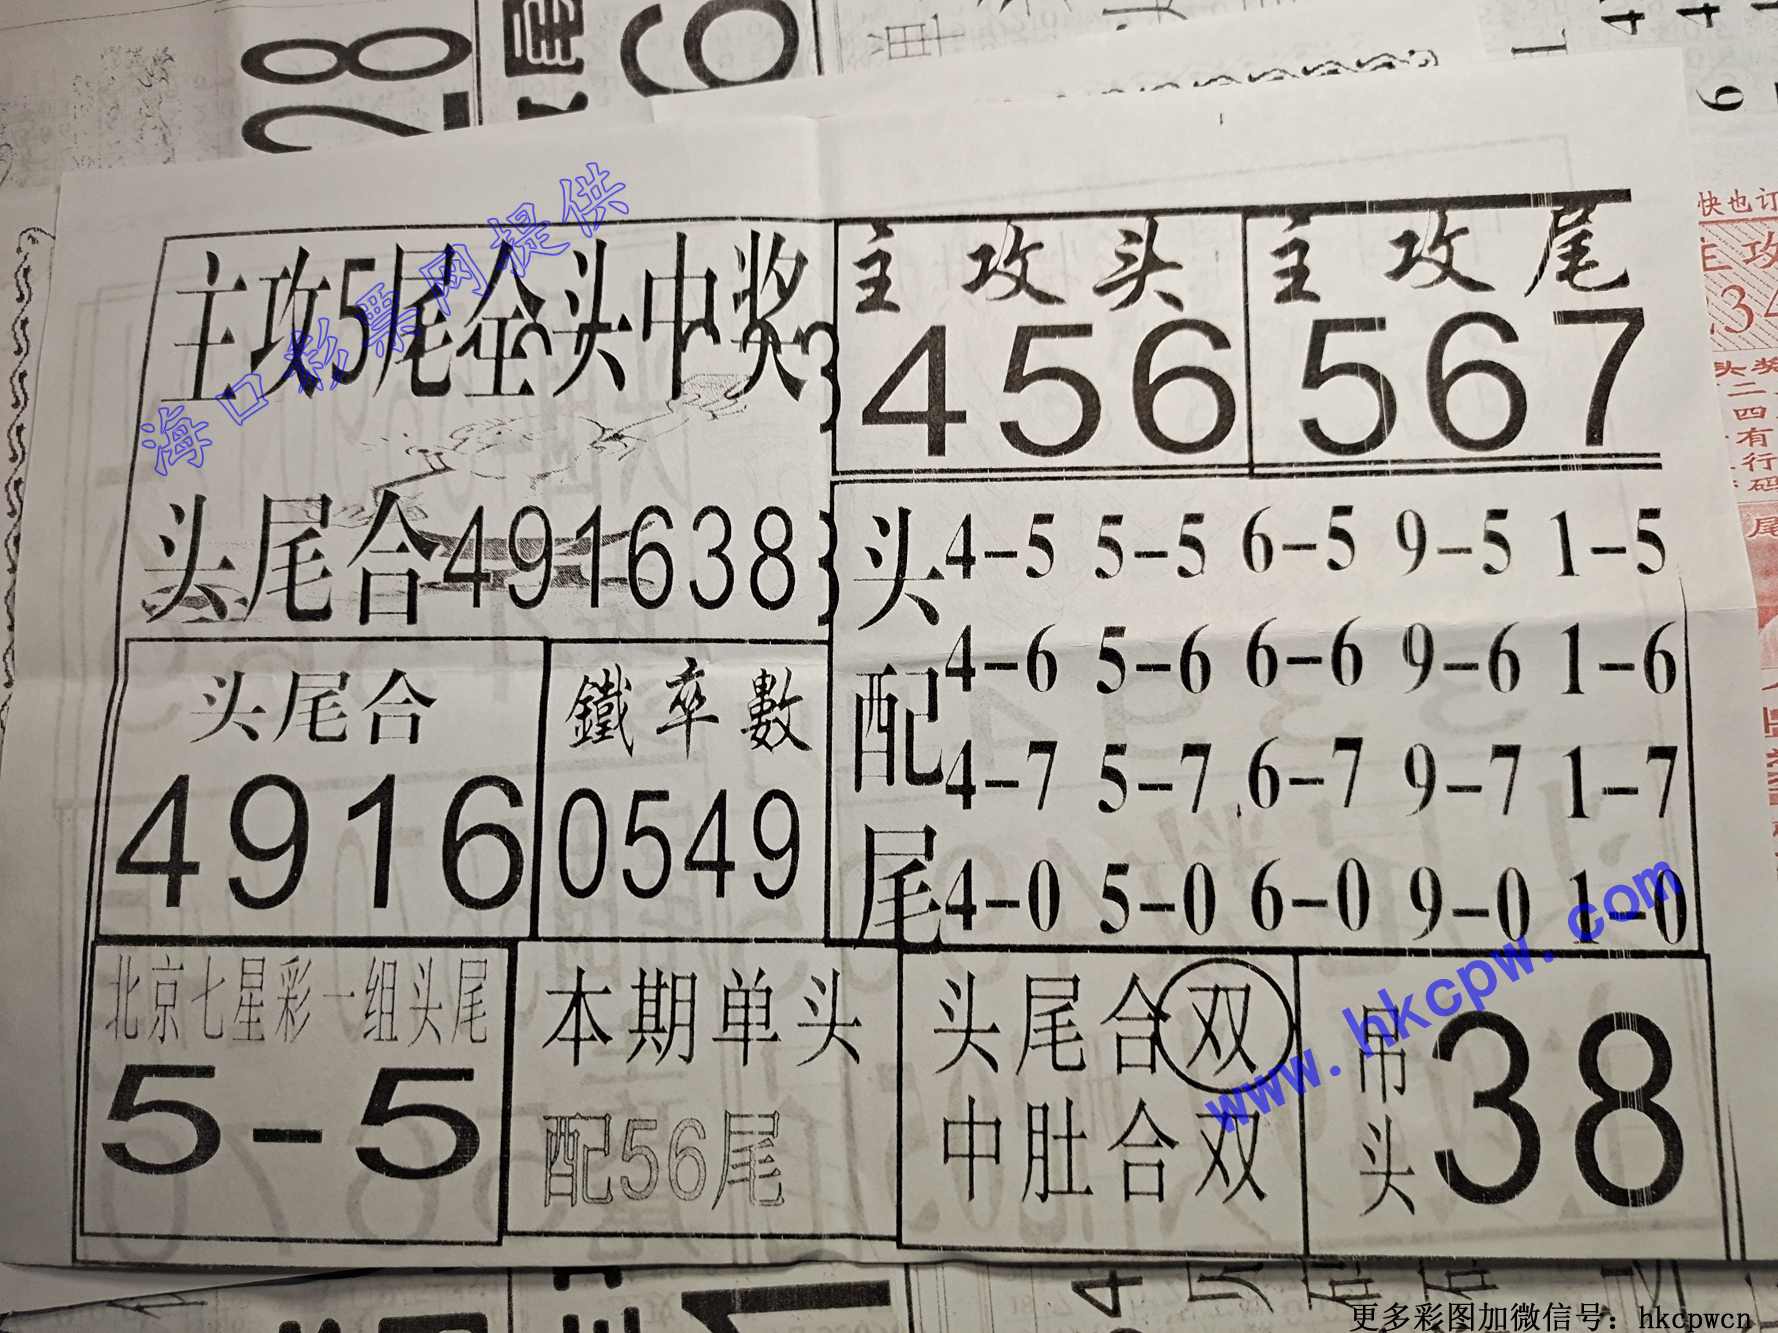 28
尾
6
海口彩票网提供
主攻5尾全头中奖
头尾合491638
主攻头
456
主攻尾
567
头配尾
4-5 5-5 6-5 9-5 1-5
4-6 5-6 6-6 9-6 1-6
4-7 5-7 6-7 9-7 1-7
4-0 5-0 6-0 9-0 1-0
头尾合
4916
鐵率數
0549
北京七星彩一组头尾
5-5
本期单头
配56尾
头尾合双
中肚合双
吊头
38
www.hkcpw.com
快也订
主攻
234
头奖
二
四
有
行
码
尾
更多彩图加微信号：hkcpwcn